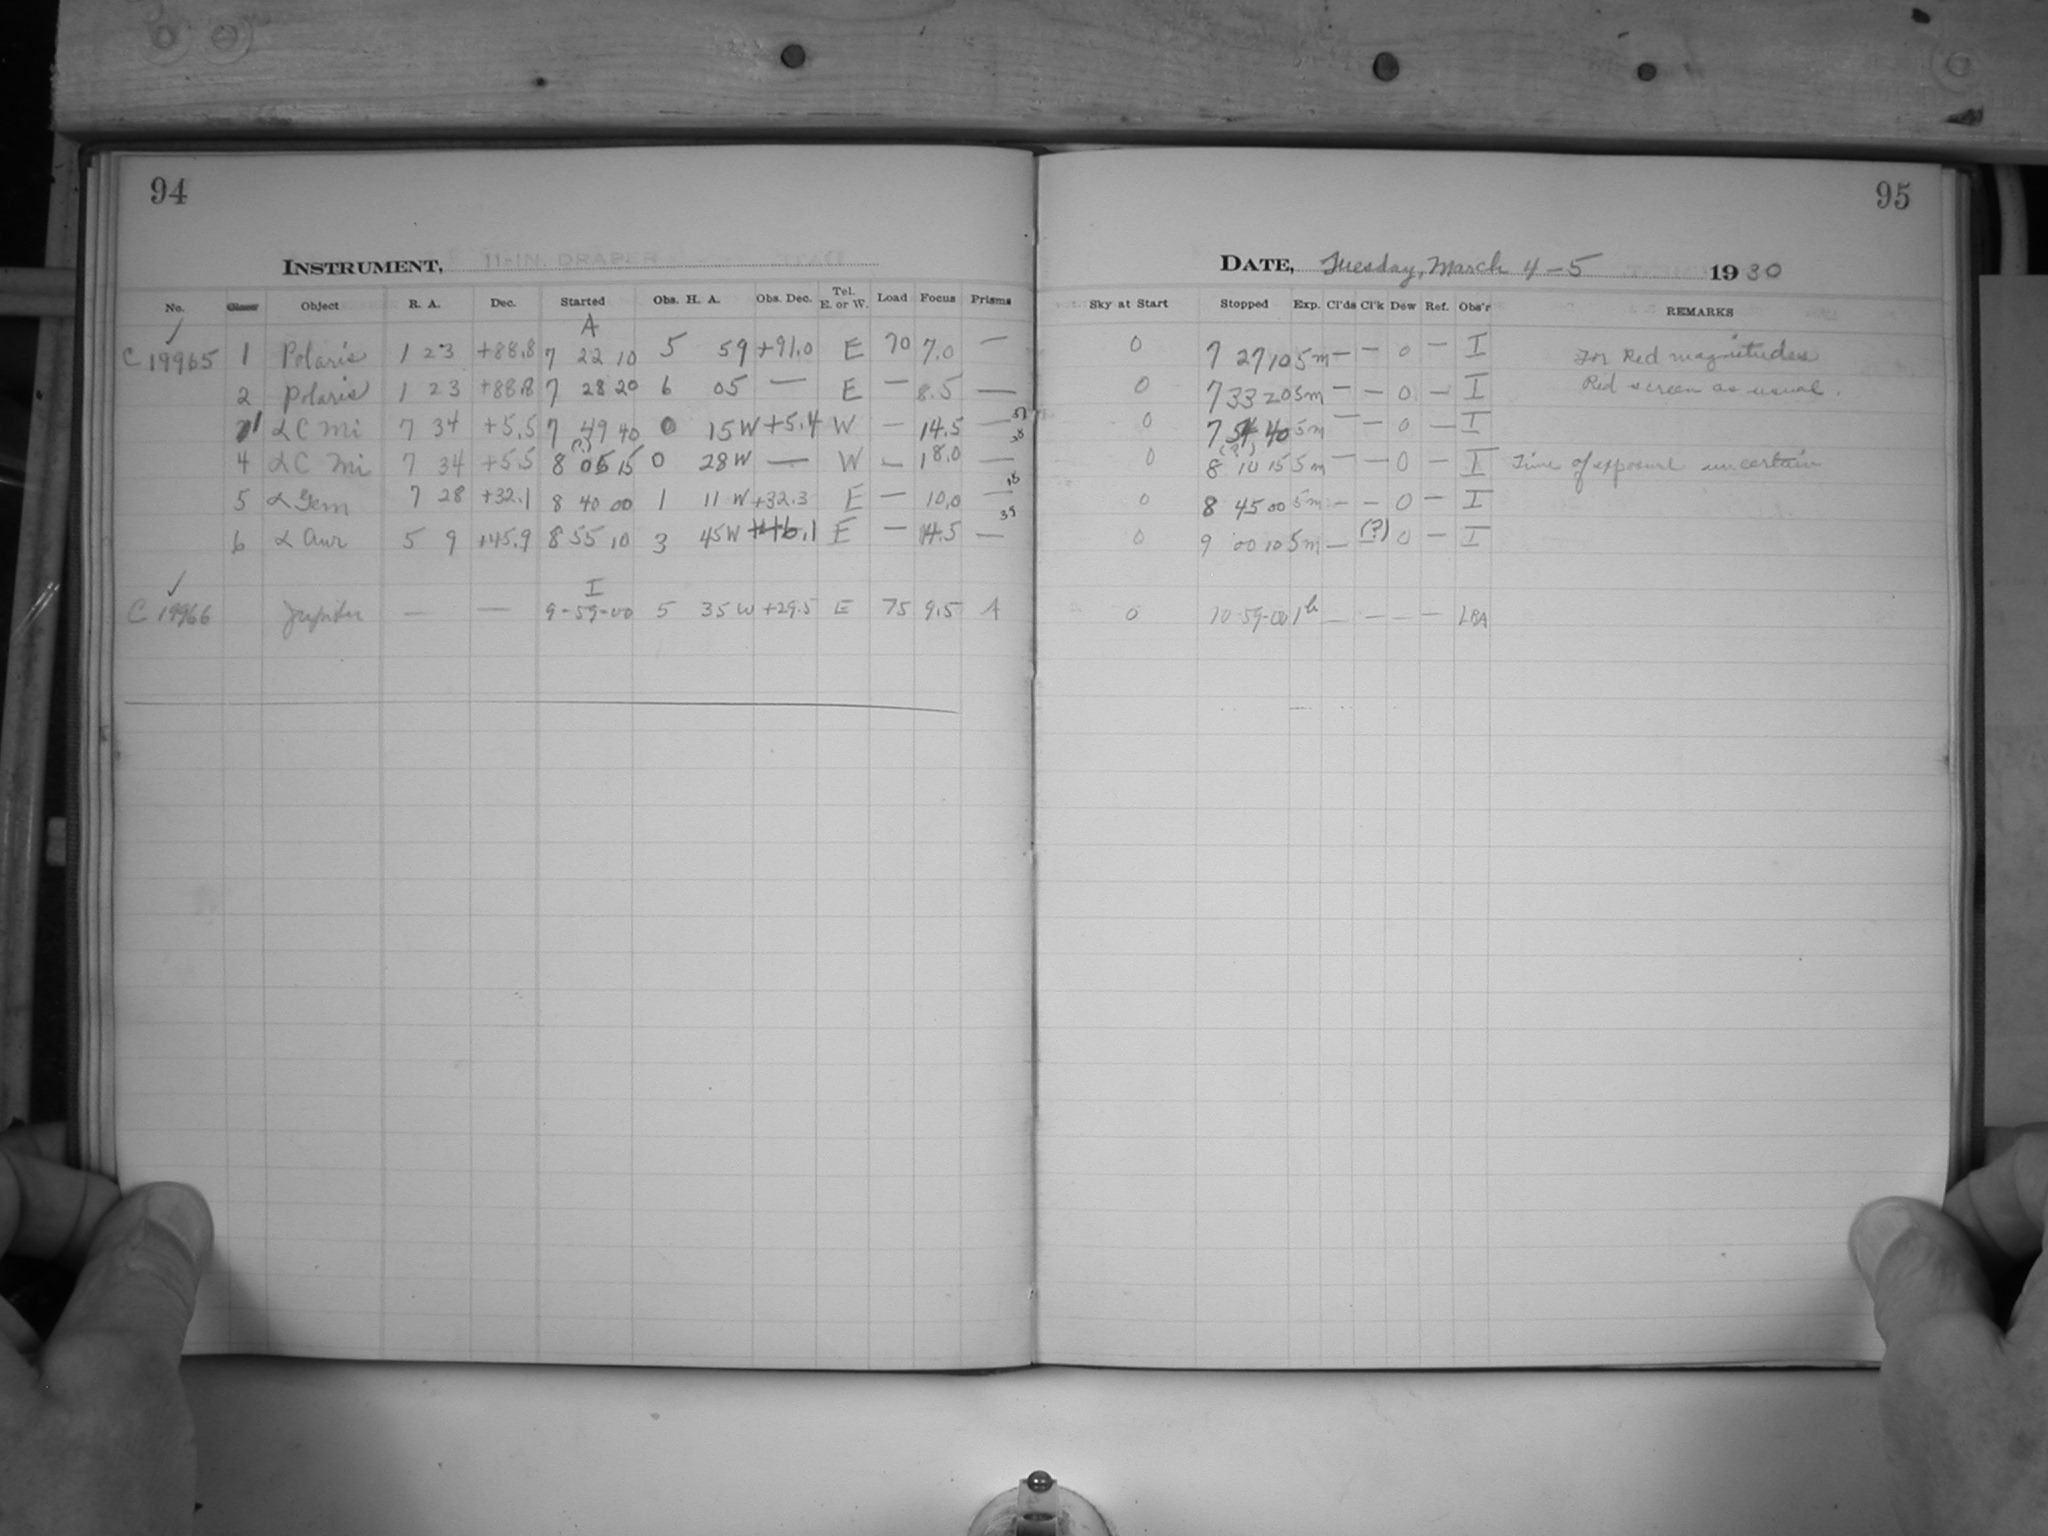 94
INSTRUMENT, 11-IN. DRAPER
No. Object R. A. Dec. Started Obs. H. A. Obs. Dec. Tel. E. or W. Load Focus Prisms
✓ A
C 19965 1 Polaris 1 23 +88.8 7 22 10 5 59 +91.0 E 70 7.0 —
2 Polaris 1 23 +88.8 7 28 20 6 05 — E — 8.5 —
α C Mi 7 34 +5.5 7 49 40 0 15 W +5.4 W — 14.5 —
4 α C Mi 7 34 +5.5 8 05 15 0 28 W — W — 18.0 —
5 α Gem 7 28 +32.1 8 40 00 1 11 W +32.3 E — 10.0 —
6 α Aur 5 9 +45.9 8 55 10 3 45 W +46.1 E — 14.5 —
✓ I
C 19966 Jupiter — — 9-59-00 5 35 W +29.5 E 75 9.5 A
95
DATE, Tuesday, March 4-5 1930
Sky at Start Stopped Exp. Cl'ds Cl'k Dew Ref. Obs'r REMARKS
0 7 27 10 5m — — 0 — I For Red magnitudes
0 7 33 20 5m — — 0 — I Red screen as usual.
0 7 54 40 5m — — 0 — I
(?)
0 8 10 15 5m — — 0 — I Time of exposure uncertain
0 8 45 00 5m — — 0 — I
0 9 00 10 5m — (?) 0 — I
0 10-59-00 1h — — — — LBA